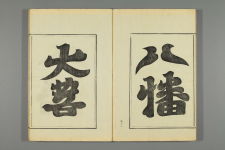 八幡
大菩